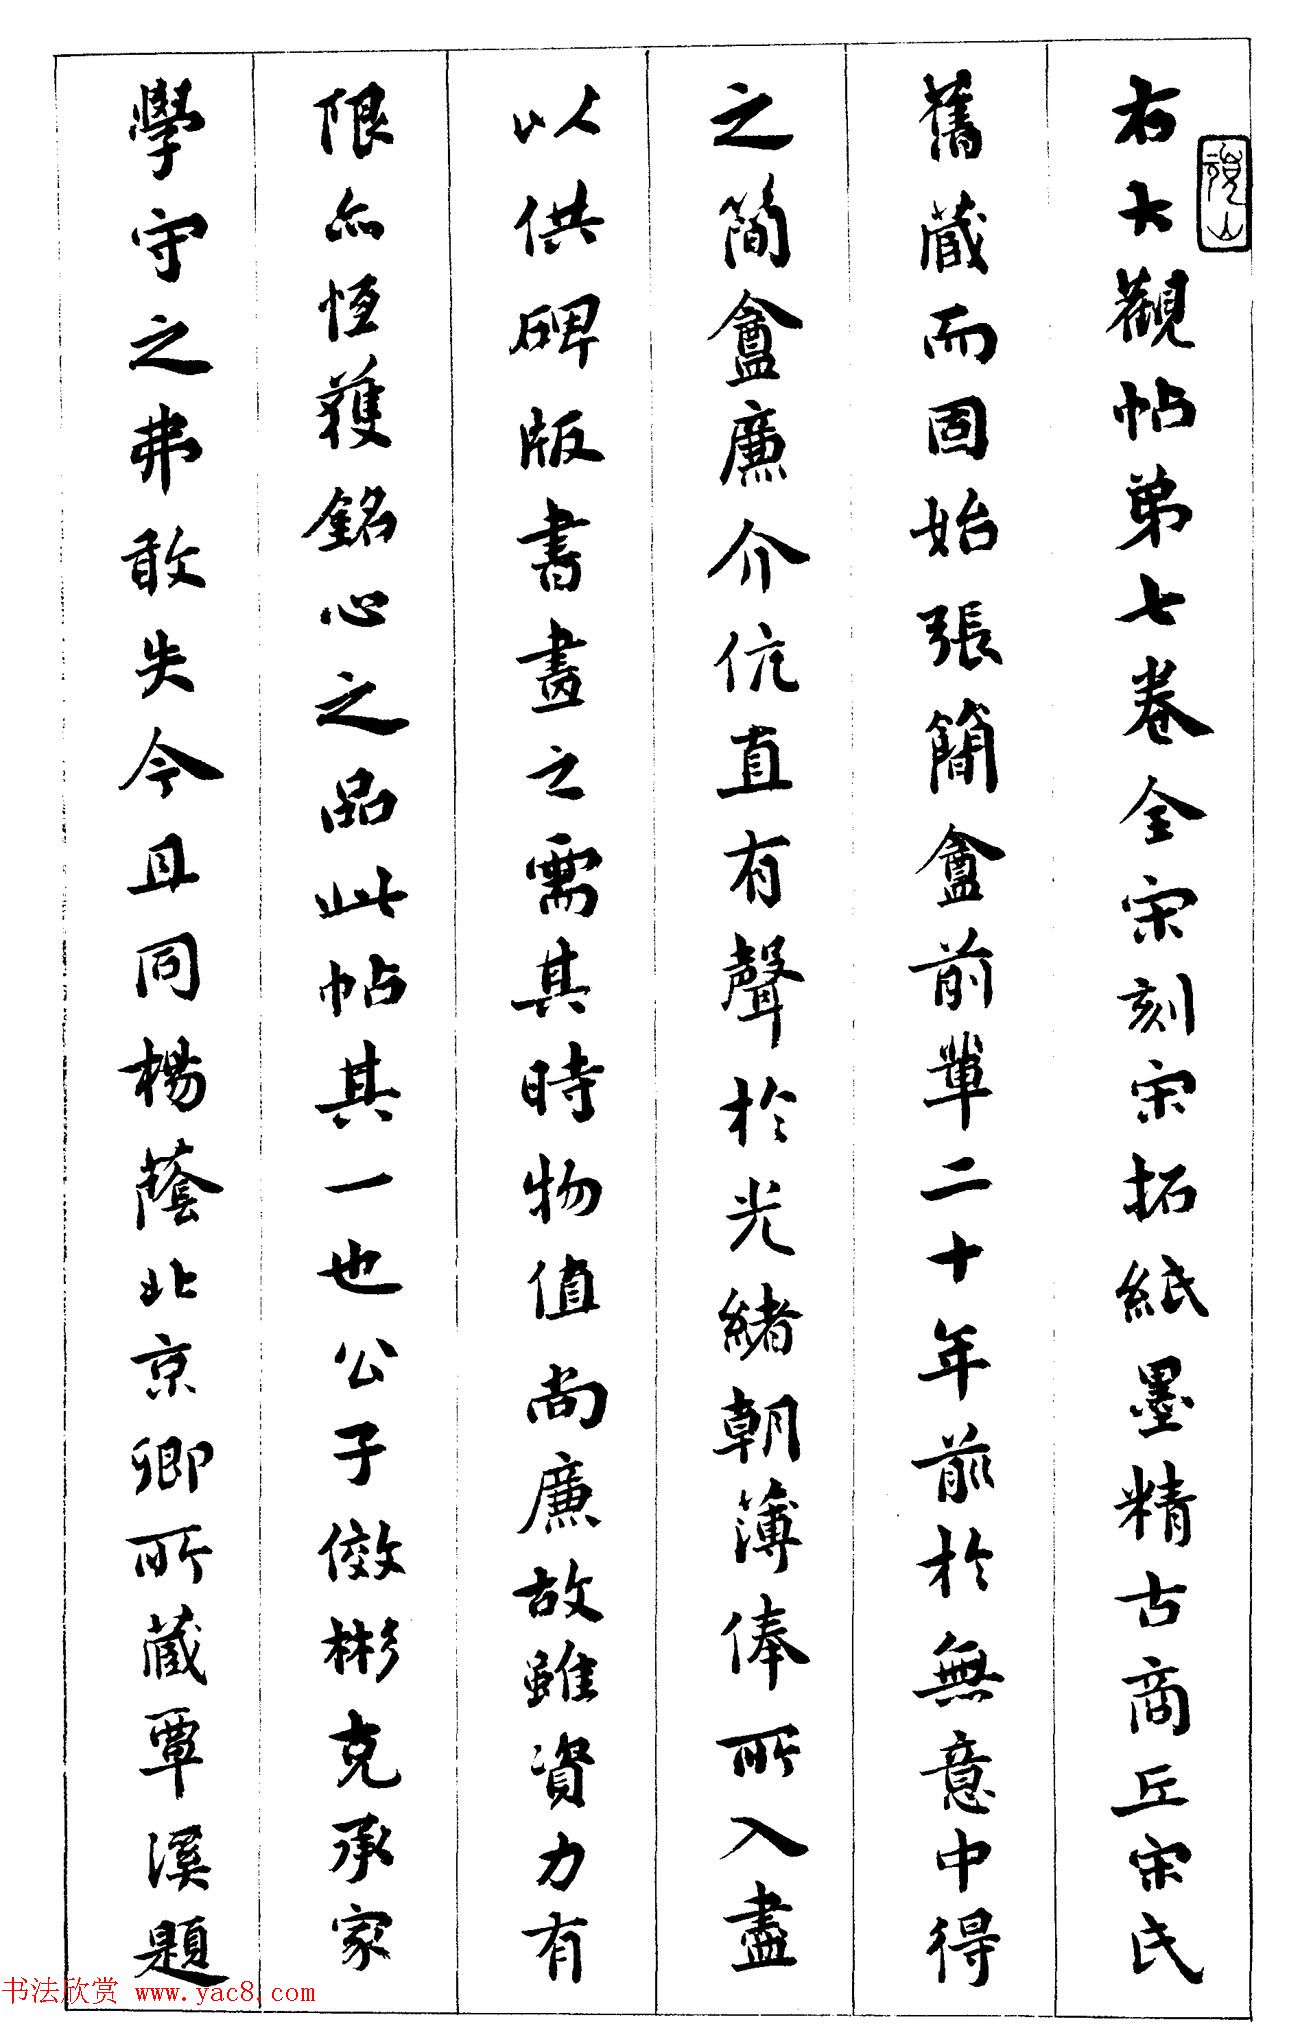 右大觀帖弟七卷全宋刻宋拓紙墨精古商丘宋氏
舊藏而固始張簡盦前輩二十年前於無意中得
之簡盦廉介伉直有聲於光緒朝薄俸所入盡
以供碑版書畫之需其時物值尚廉故雖資力有
限亦恆獲銘心之品此帖其一也公子傚彬克承家
學守之弗敢失今且同楊蔭北京卿所藏覃溪題
書法欣赏 www.yac8.com